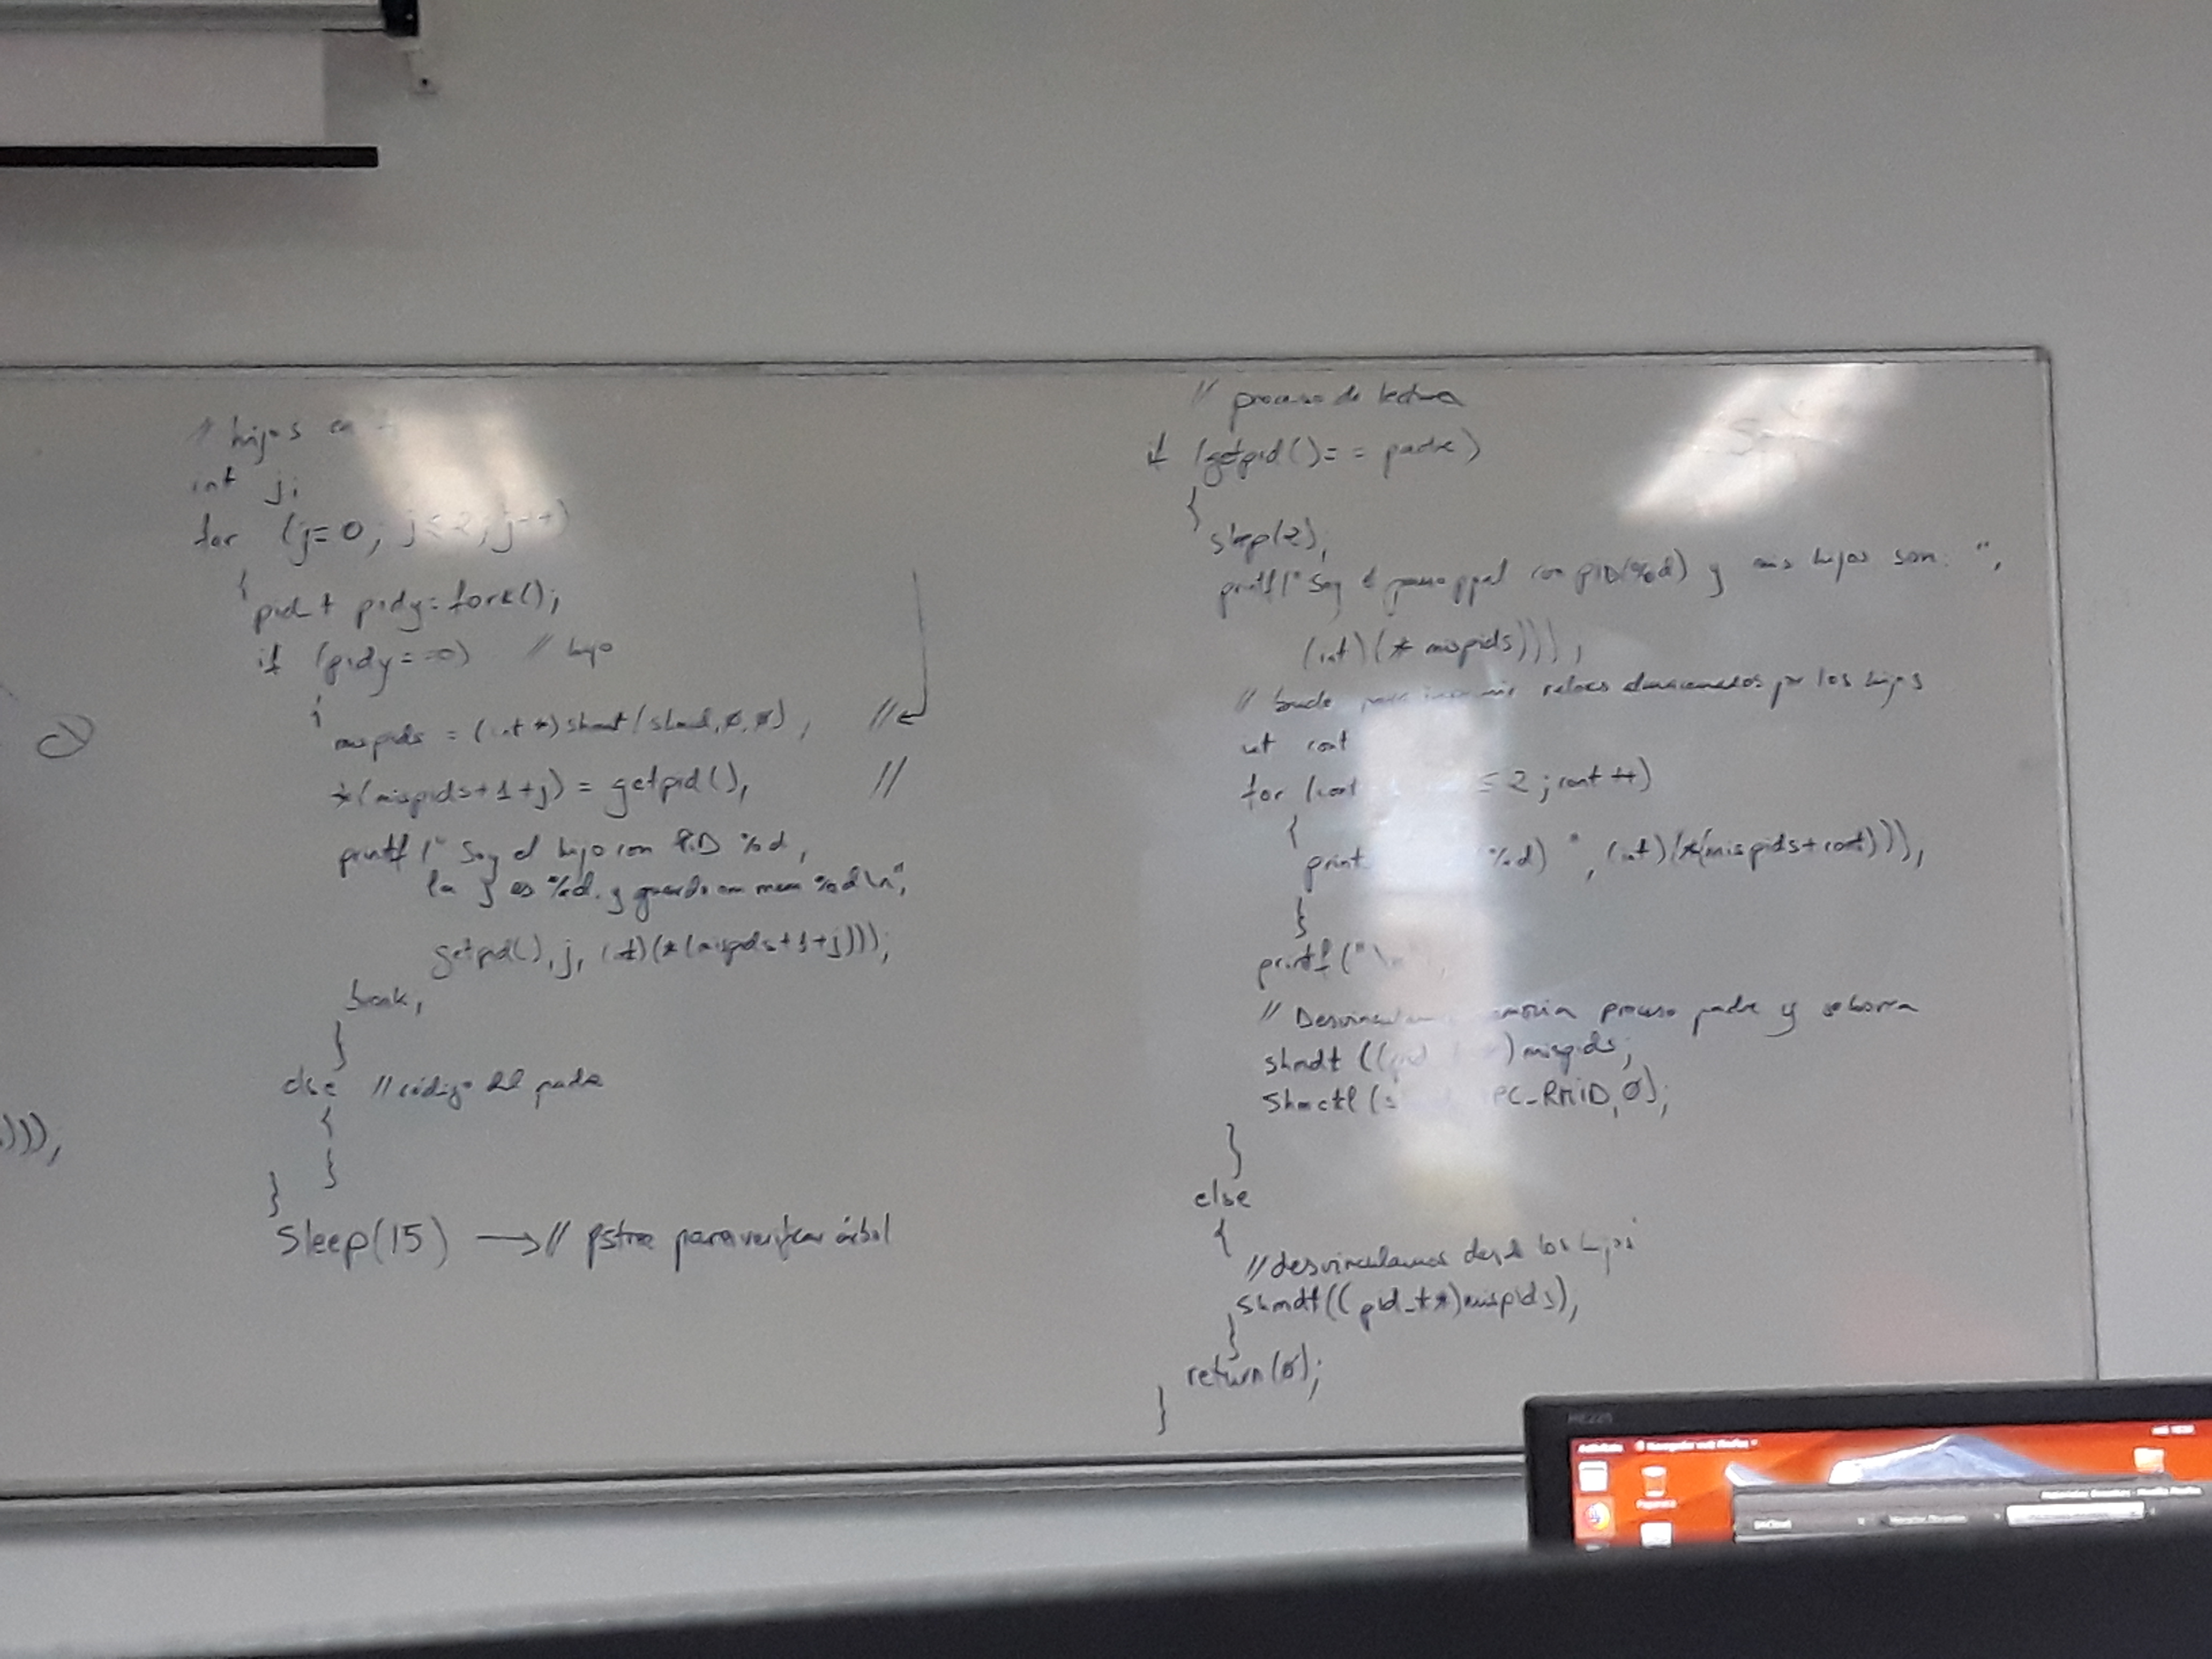 // hijos en
int j;
for (j=0; j<2; j++)
{
pid_t pidy=fork();
if (pidy==0) // hijo
{
mispids = (int *) shmat(shmid,0,0); //
*(mispids+1+j) = getpid(); //
printf (" Soy el hijo con PID %d,
la j es %d. y guardo en mem %d\n",
getpid(), j, (int)(*(mispids+1+j)));
break;
}
else // código del padre
{
}
}
Sleep(15) → // pstree para verificar árbol
)));
// proceso de lectura
if (getpid()== padre)
{
sleep(2);
printf(" Soy el proceso ppal con PID(%d) y mis hijos son: ",
(int)(* mispids)));
// bucle para imprimir valores almacenados por los hijos
int cont
for (cont ≤ 2 ; cont ++)
{
print %d) ", (int)(*(mispids+cont)));
}
printf ("\n
// Desvinculamos memoria proceso padre y se borra
shmdt ((pid )mispids;
Shmctl ( PC_RMID, 0);
}
else
{
// desvinculamos desde los hijos
shmdt((pid_t *)mispids);
}
return(0);
}